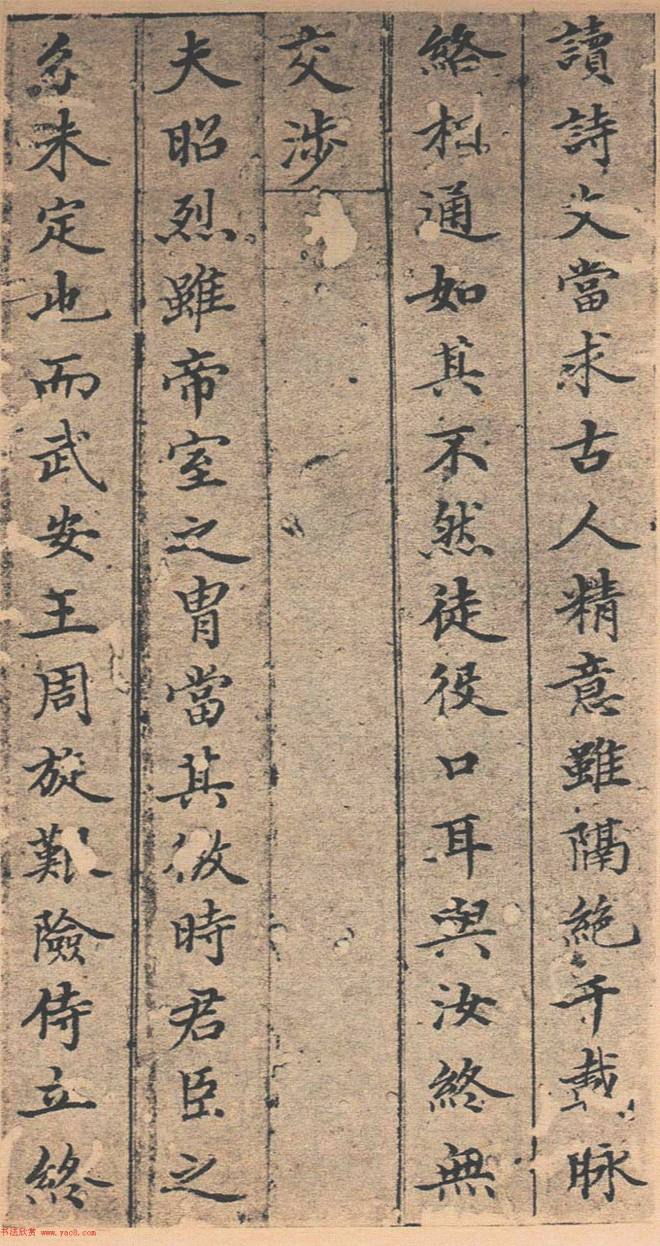 讀詩文當求古人精意雖隔絶千載脉
絡相通如其不然徒役口耳與汝終無
交涉
夫昭烈雖帝室之胄當其微時君臣之
分未定也而武安王周旋艱險侍立終
书法欣赏 www.yac8.com